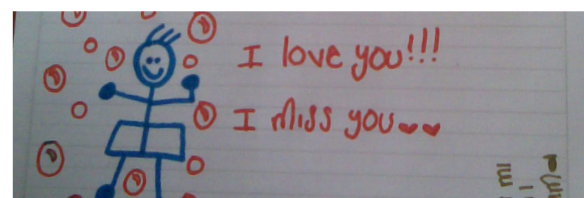 I love you!!!
I miss you